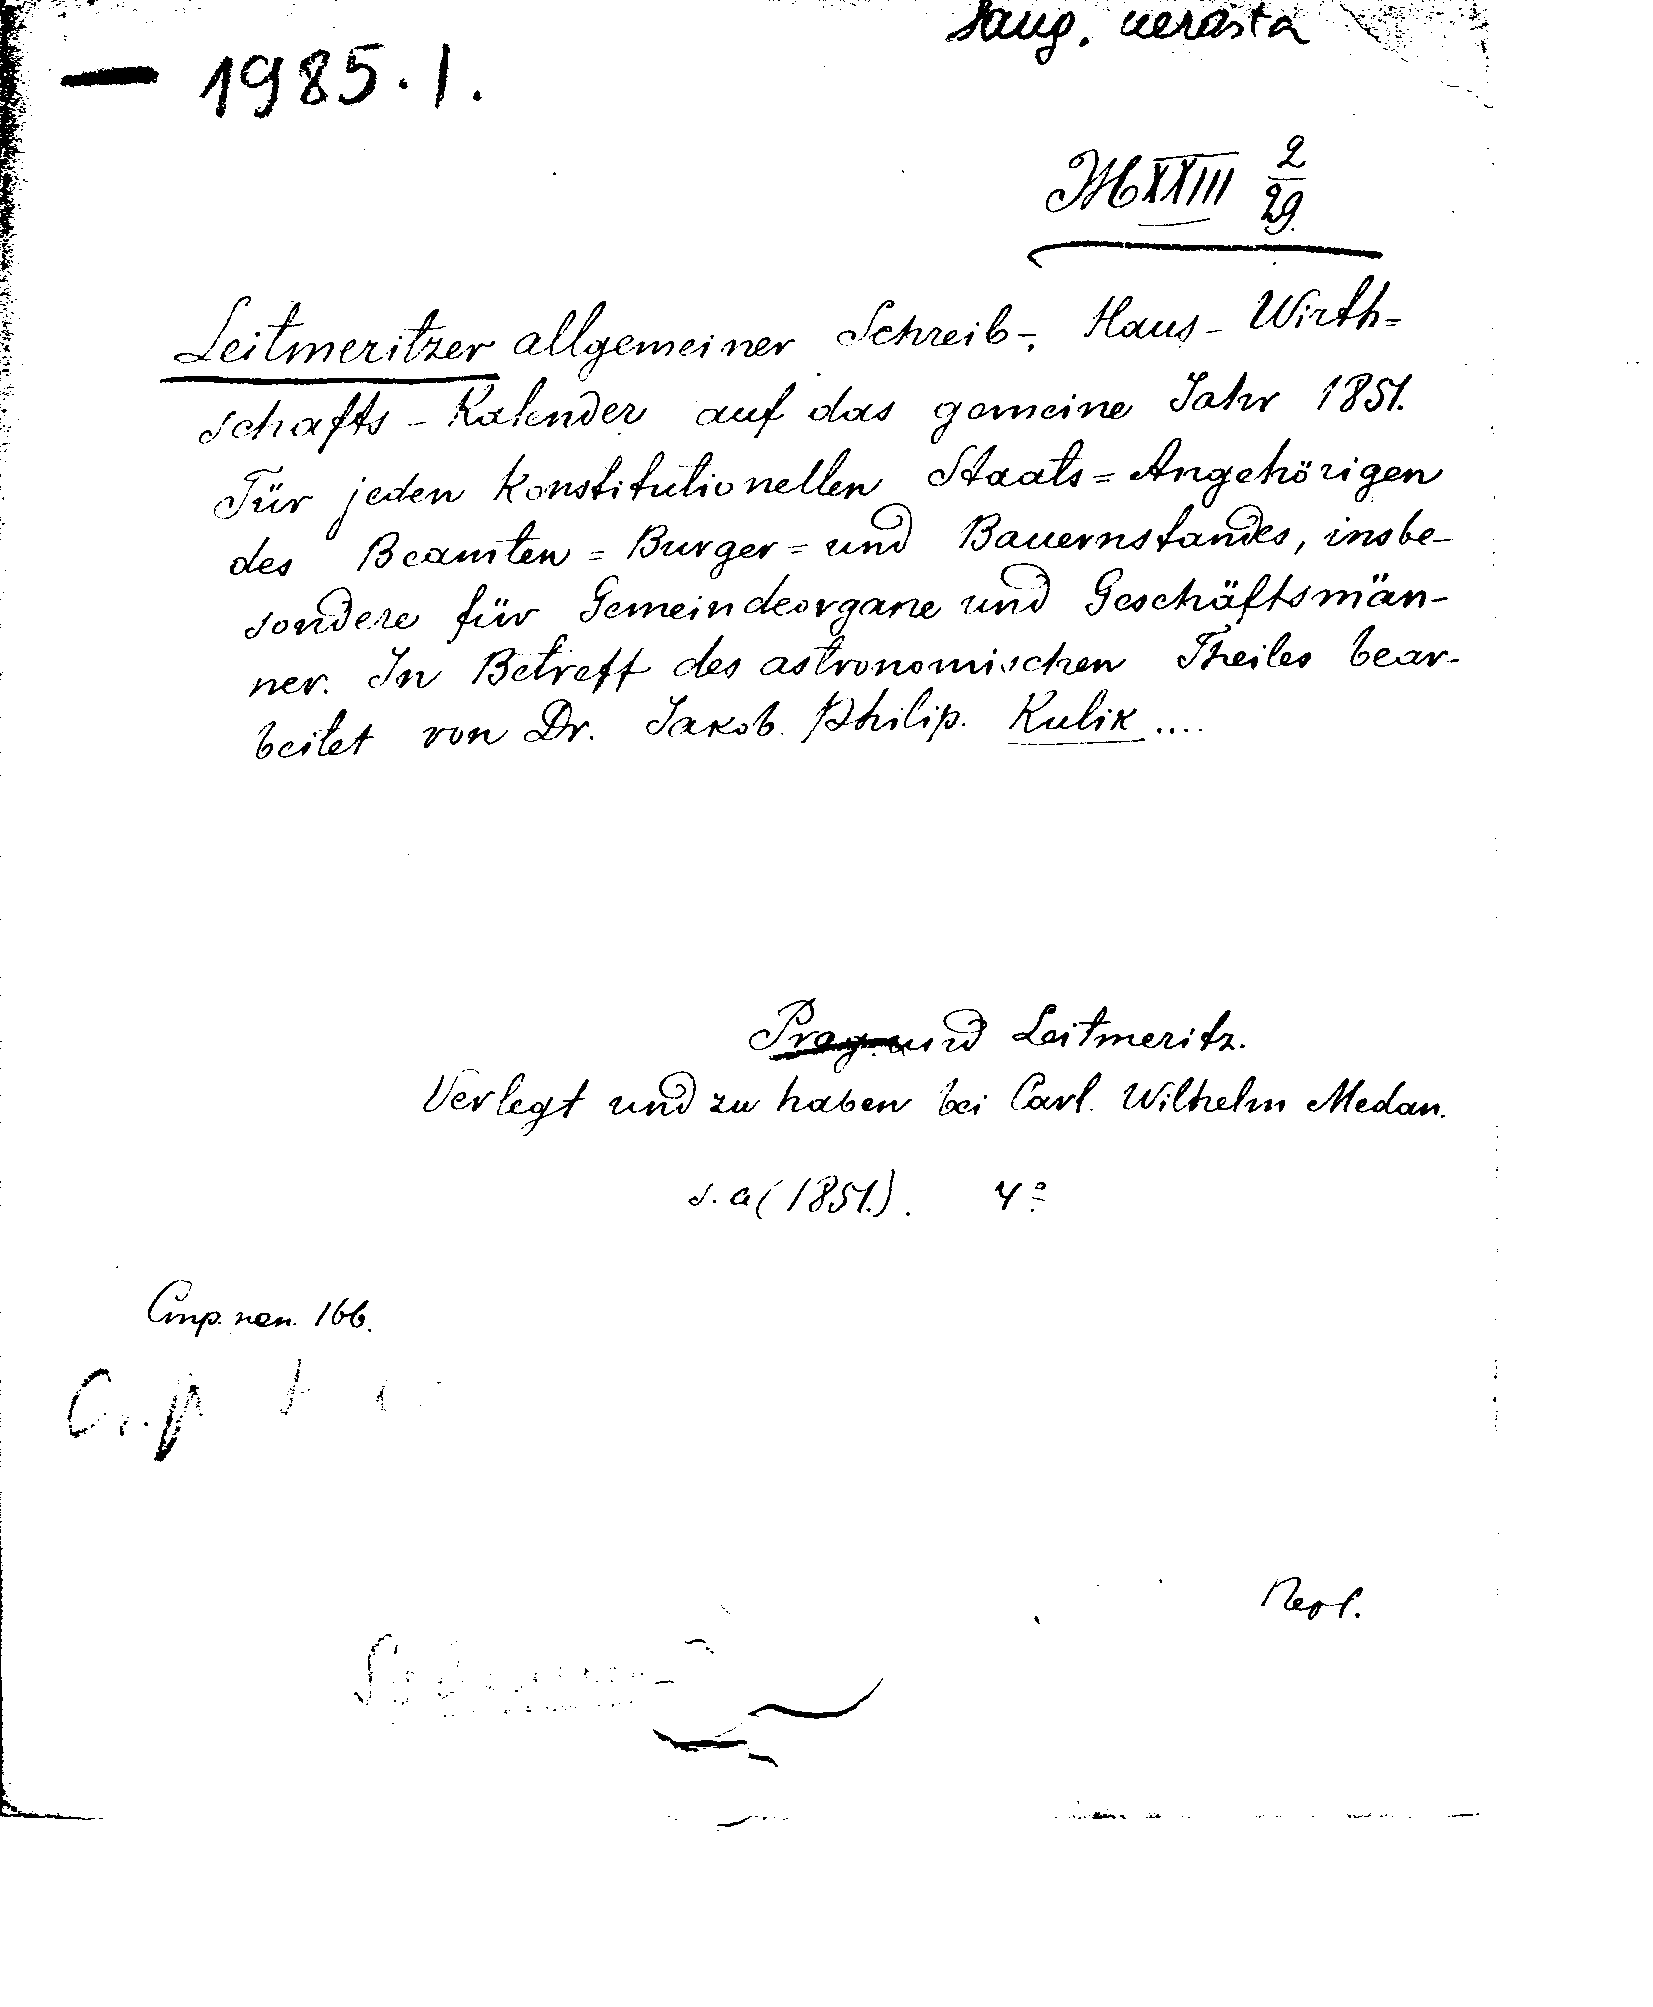 — 1985.1.
M XXIII 2/29.
Leitmeritzer allgemeiner Schreib-, Haus- Wirth=
schafts-Kalender auf das gemeine Jahr 1851.
Für jeden konstitutionellen Staats=Angehörigen
des Beamten=Burger=und Bauernstandes, insbe-
sondere für Gemeindeorgane und Geschäftsmän-
ner. In Betreff des astronomischen Theiles bear-
beitet von Dr. Jakob Philip. Kulik ....
Prag und Leitmeritz.
Verlegt und zu haben bei Carl Wilhelm Medau.
s.a (1851.). 4°
166.